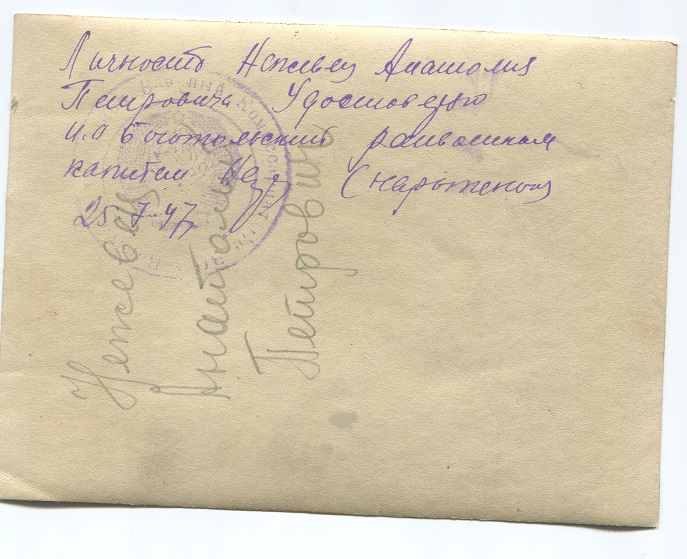 Личность Нежевец Анатолия
Петровича Удостоверяю
И.О Боготольский райвоенком
капитан (Снарыженков
25.I.47
Нежевец
Анатолий
Петрович